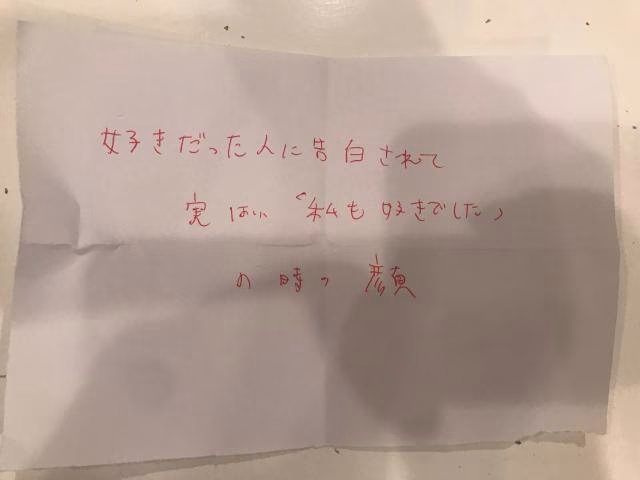 好きだった人に告白されて
実はい「私も好きでした」
の時の顔